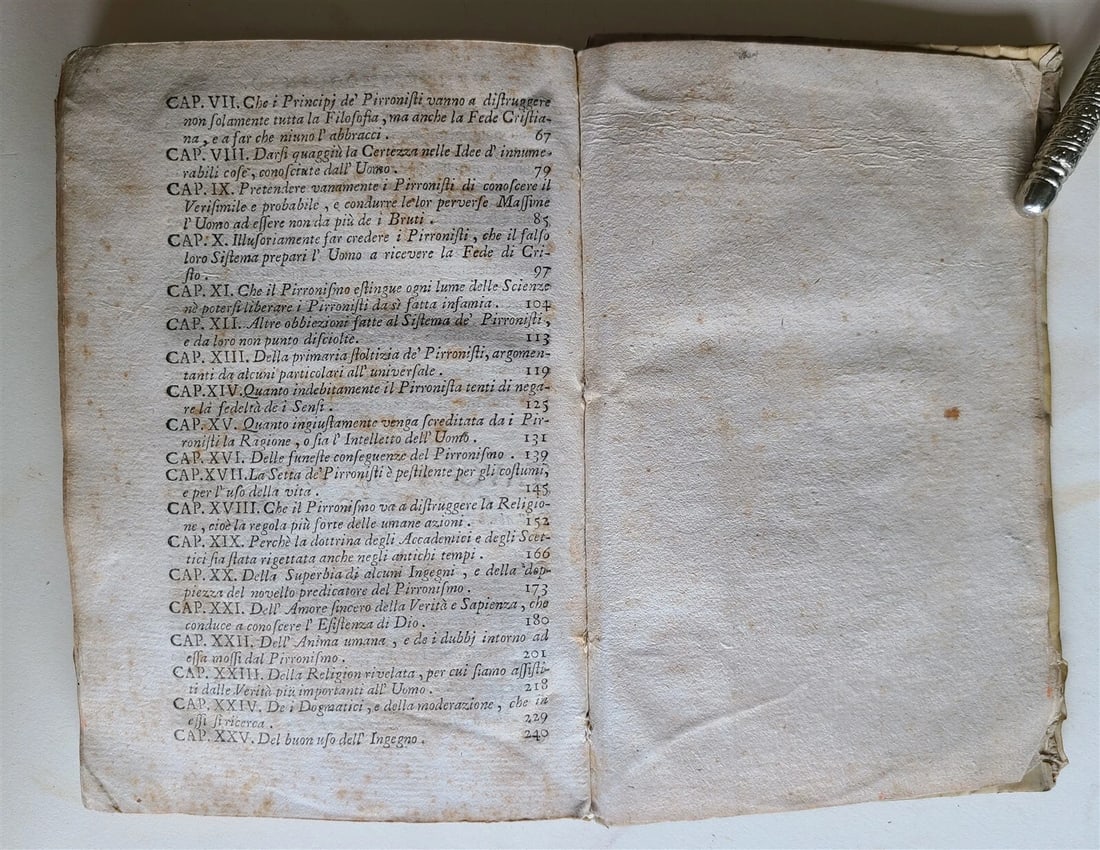 CAP. VII. Che i Principj de' Pirroniſti vanno a diſtruggere
non ſolamente tutta la Filoſofia, ma anche la Fede Criſtia-
na, e a far che niuno l' abbracci. 67
CAP. VIII. Darſi quaggiù la Certezza nelle Idee d' innume-
rabili coſe, conoſciute dall' Uomo. 79
CAP. IX. Pretendere vanamente i Pirroniſti di conoſcere il
Veriſimile e probabile, e condurre le lor perverſe Maſſime
l' Uomo ad eſſere non da più de i Bruti. 85
CAP. X. Illuſoriamente far credere i Pirroniſti, che il falſo
loro Siſtema prepari l' Uomo a ricevere la Fede di Cri-
ſto. 97
CAP. XI. Che il Pirroniſmo eſtingue ogni lume delle Scienze
nè poterſi liberare i Pirroniſti da sì fatta infamia. 104
CAP. XII. Altre obbiezioni fatte al Siſtema de' Pirroniſti,
e da loro non punto diſciolte. 113
CAP. XIII. Della primaria ſtoltizia de' Pirroniſti, argomen-
tanti da alcuni particolari all' univerſale. 119
CAP. XIV. Quanto indebitamente il Pirroniſta tenti di nega-
re la fedeltà de i Senſi. 125
CAP. XV. Quanto ingiuſtamente venga ſcreditata da i Pir-
roniſti la Ragione, o ſia l' Intelletto dell' Uomo. 131
CAP. XVI. Delle funeſte conſeguenze del Pirroniſmo. 139
CAP. XVII. La Setta de' Pirroniſti è peſtilente per gli coſtumi,
e per l' uſo della vita. 145
CAP. XVIII. Che il Pirroniſmo va a diſtruggere la Religio-
ne, cioè la regola più forte delle umane azioni. 152
CAP. XIX. Perchè la dottrina degli Accademici e degli Scet-
tici ſia ſtata rigettata anche negli antichi tempi. 166
CAP. XX. Della Superbia di alcuni Ingegni, e della dop-
piezza del novello predicatore del Pirroniſmo. 173
CAP. XXI. Dell' Amore ſincero della Verità e Sapienza, che
conduce a conoſcere l' Eſiſtenza di Dio. 180
CAP. XXII. Dell' Anima umana, e de i dubbj intorno ad
eſſa moſſi dal Pirroniſmo. 201
CAP. XXIII. Della Religion rivelata, per cui ſiamo aſſiſti-
ti dalle Verità più importanti all' Uomo. 218
CAP. XXIV. De i Dogmatici, e della moderazione, che in
eſſi ſi ricerca. 229
CAP. XXV. Del buon uſo dell' Ingegno. 240